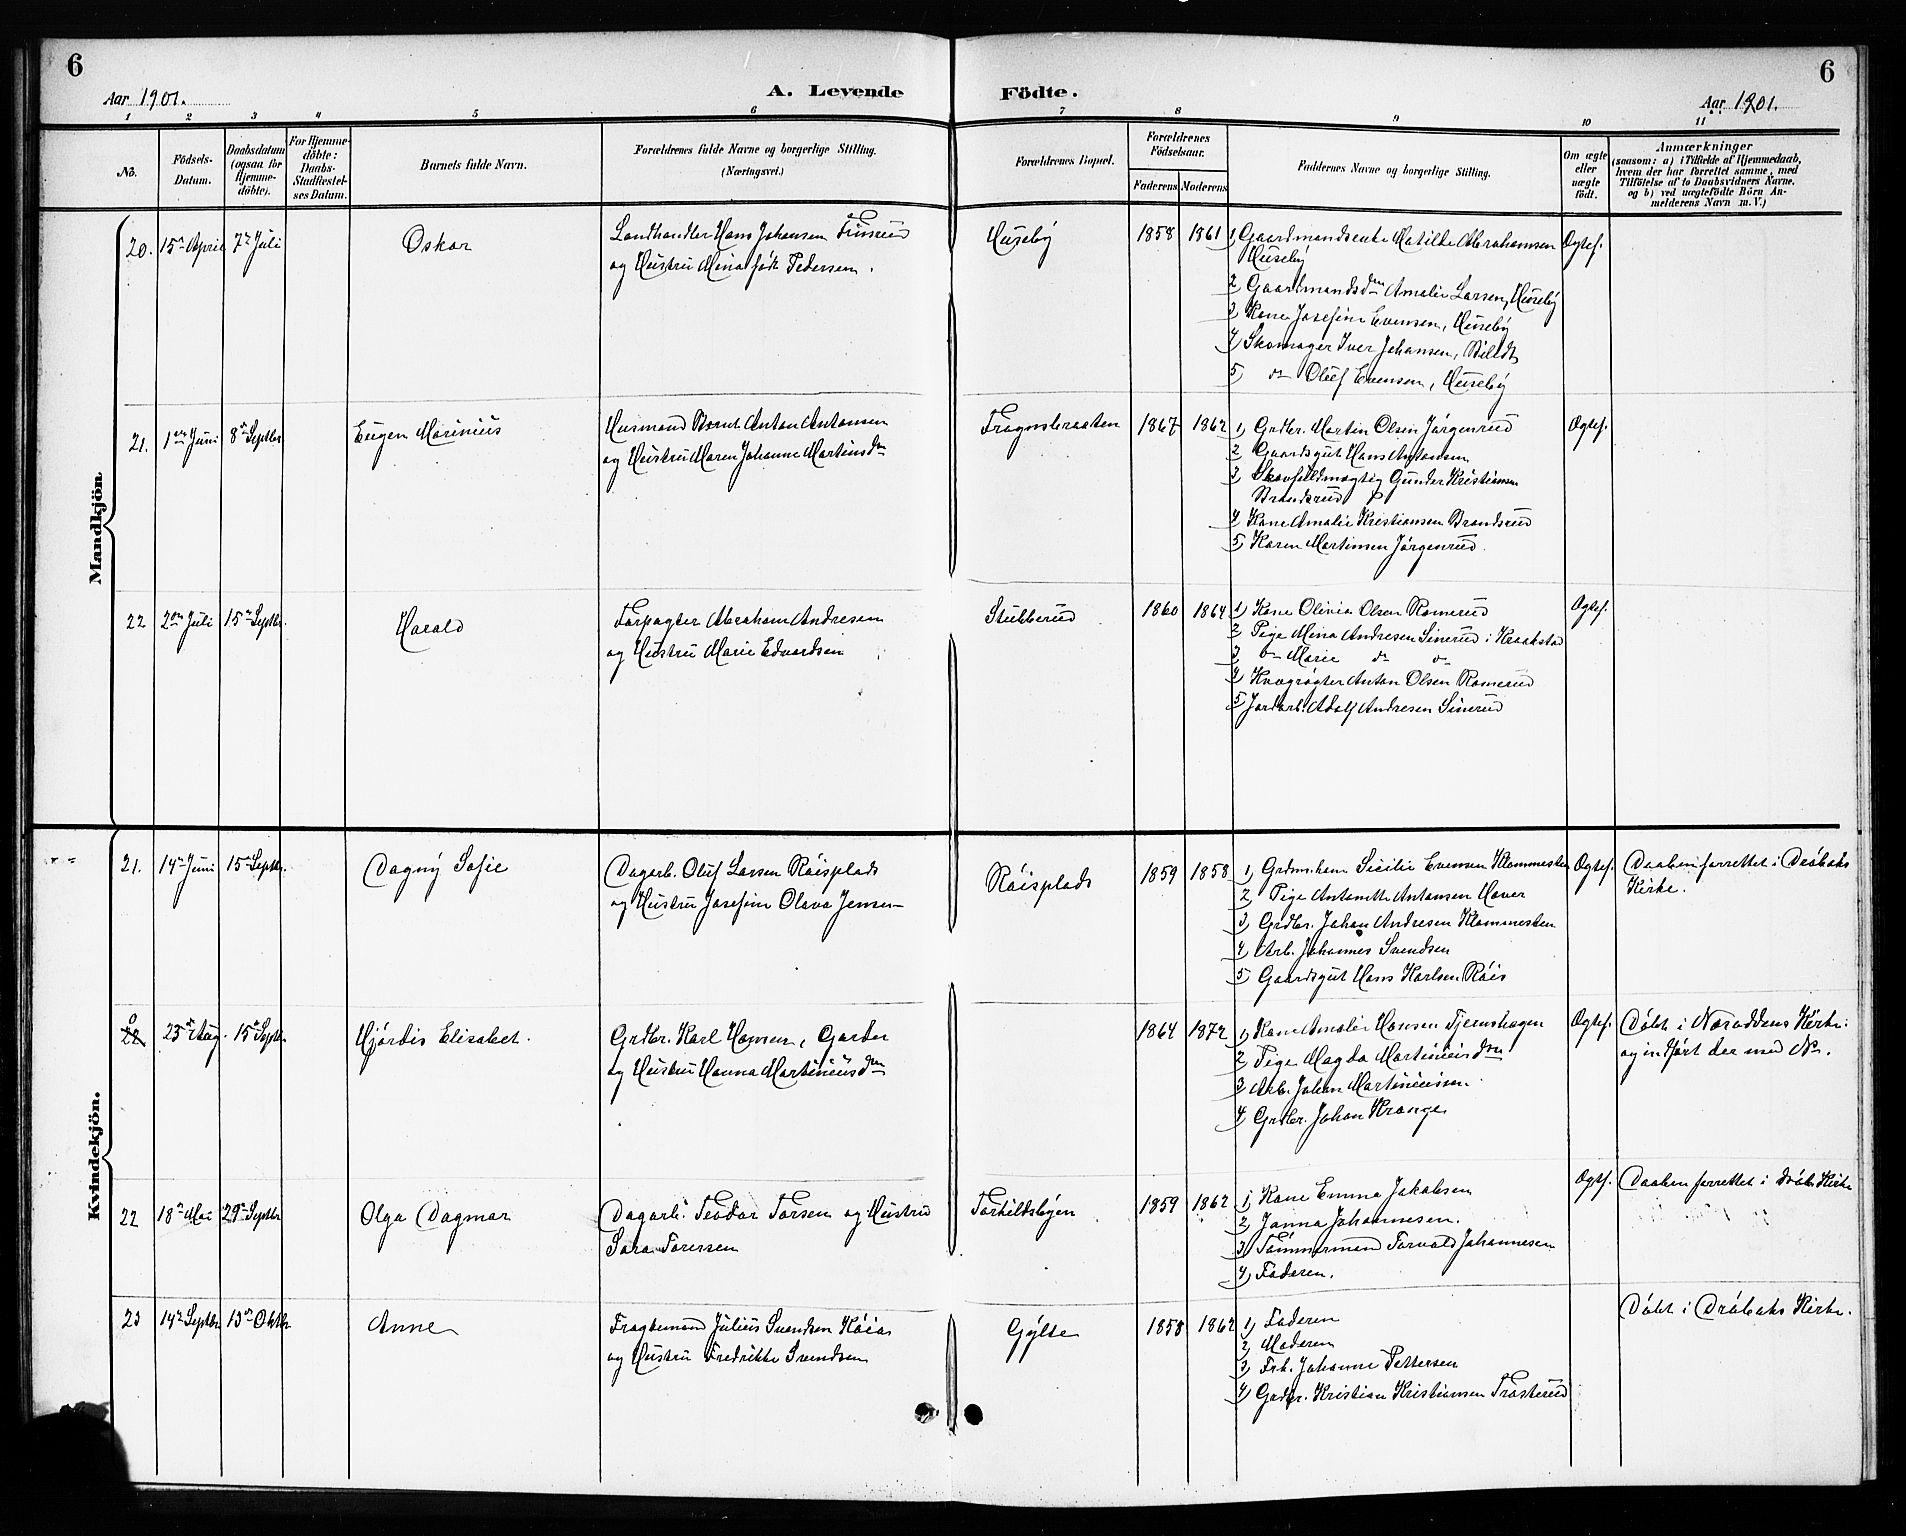 6
6
Aar 1901.
A. Levende Födte.
Aar 1901.
1 2 3 4 5 6 7 8 9 10 11
No.
Födsels-
Datum.
Daabsdatum
(ogsaa for
Hjemme-
döbte).
For Hjemme-
döbte:
Daabs-
Stadfæstel-
ses Datum.
Barnets fulde Navn.
Forældrenes fulde Navne og borgerlige Stilling.
(Næringsvei.)
Forældrenes Bopæl.
Forældrenes
Födselsaar.
Faderens Moderens
Faddernes Navne og borgerlige Stilling.
Om ægte
eller
uægte
födt.
Anmærkninger
(saasom: a) i Tilfælde af Hjemmedaab,
hvem der har forrettet samme, med
Tilföielse af to Daabsvidners Navne,
og b) ved uægtefödte Börn An-
melderens Navn m. V.)
Mandkjön.
20. 15de April 7de Juli
Oskar
Landhandler Hans Johansen
og Hustru Mina født Pedersen.
Huseby
1858 1861
1, Gaardmandsenke Matilde Abrahamsen
Huseby
2 Gaardmandsdtr Amalie Larsen, Huseby
3, Kone Josefine Evensen, Huseby
4, Skomager Iver Johansen, Billdt
5, do Oluf Evensen, Huseby
Ogtef.
21. 1ste Juni 8de Septbr
Eugen Marinius
Husmand Bernt Anton Antonsen
og Hustru Maren Johanne Martinsdtr
Frognsbraaten
1867 1862
1, Grdbr. Martin Olsen Jørgenrud
2 Gaardsgut Hans Antonsen
3, Skovfuldmægtig Gunder Kristiansen
Brandsrud
4, Kone Amalie Kristiansen Brandsrud
5, Karen Martinsen Jørgenrud.
Ogtef.
22 2den Juli 15de Septbr.
Harald
Forpagter Abraham Andresen
og Hustru Marie Edvardsen
Stubberud
1860 1864
1, Kone Olivia Olsen Romerud
2 Pige Mina Andresen Sinerud i Kraakstad
3, do Marie do do
4, Kvægrøgter Anton Olsen Romerud
5, Jordarb. Adolf Andresen Sinerud
Ogtef.
Kvindekjön.
21. 14de Juni 15de Septbr.
Dagny Sofie
Dagarb. Oluf Larsen Röisplads
og Hustru Josefine Olava Jensen
Röisplads
1859 1858
1, Grdm.kone Sicilie Evensen Klommesten
2, Pige Antonette Antonsen Hover
3, Grdbr. Johan Andresen Klommesten
4, Arb. Johannes Svendsen
5, Gaardsgut Hans Karlsen Röis
Ogtef.
Daaben forrettet i Dröbaks
Kirke.
0
22 23de Aug. 15de Septbr.
Hjördis Elisabet.
Grdbr. Karl Hansen, Garder
og Hustru Hanna Martiniusdtr
1864 1872
1, Kone Amalie Hansen Tjernshagen
2 Pige Magda Martiniusdtr.
3, Arb. Johan Martiniussen.
4, Grdbr. Johan Krange
Ogtef.
Döbt i Nesoddens Kirke
og indført der med No.
22 18de Mai 29de Septbr
Olga Dagmar
Dagarb. Teodor Torsen og Hustru
Sara Toressen
Torkildsbyen
1859 1862
1, Kone Emma Jakobsen
2, Janna Johannesen.
3, Tömmermand Torvald Johannesen
4, Faderen.
Ogtef.
Daaben forrettet i Dröb. Kirke
23 14de Septbr 13de Oktbr
Anne
Fragtemand Julius Svendsen Röis
og Hustru Fredrikke Svendsen
Gylte
1858 1862
1, Faderen
2, Moderen
3, Frk. Johanne Pettersen
4, Grdbr. Kristian Kristiansen Trosterud
Döbt i Dröbaks Kirke.